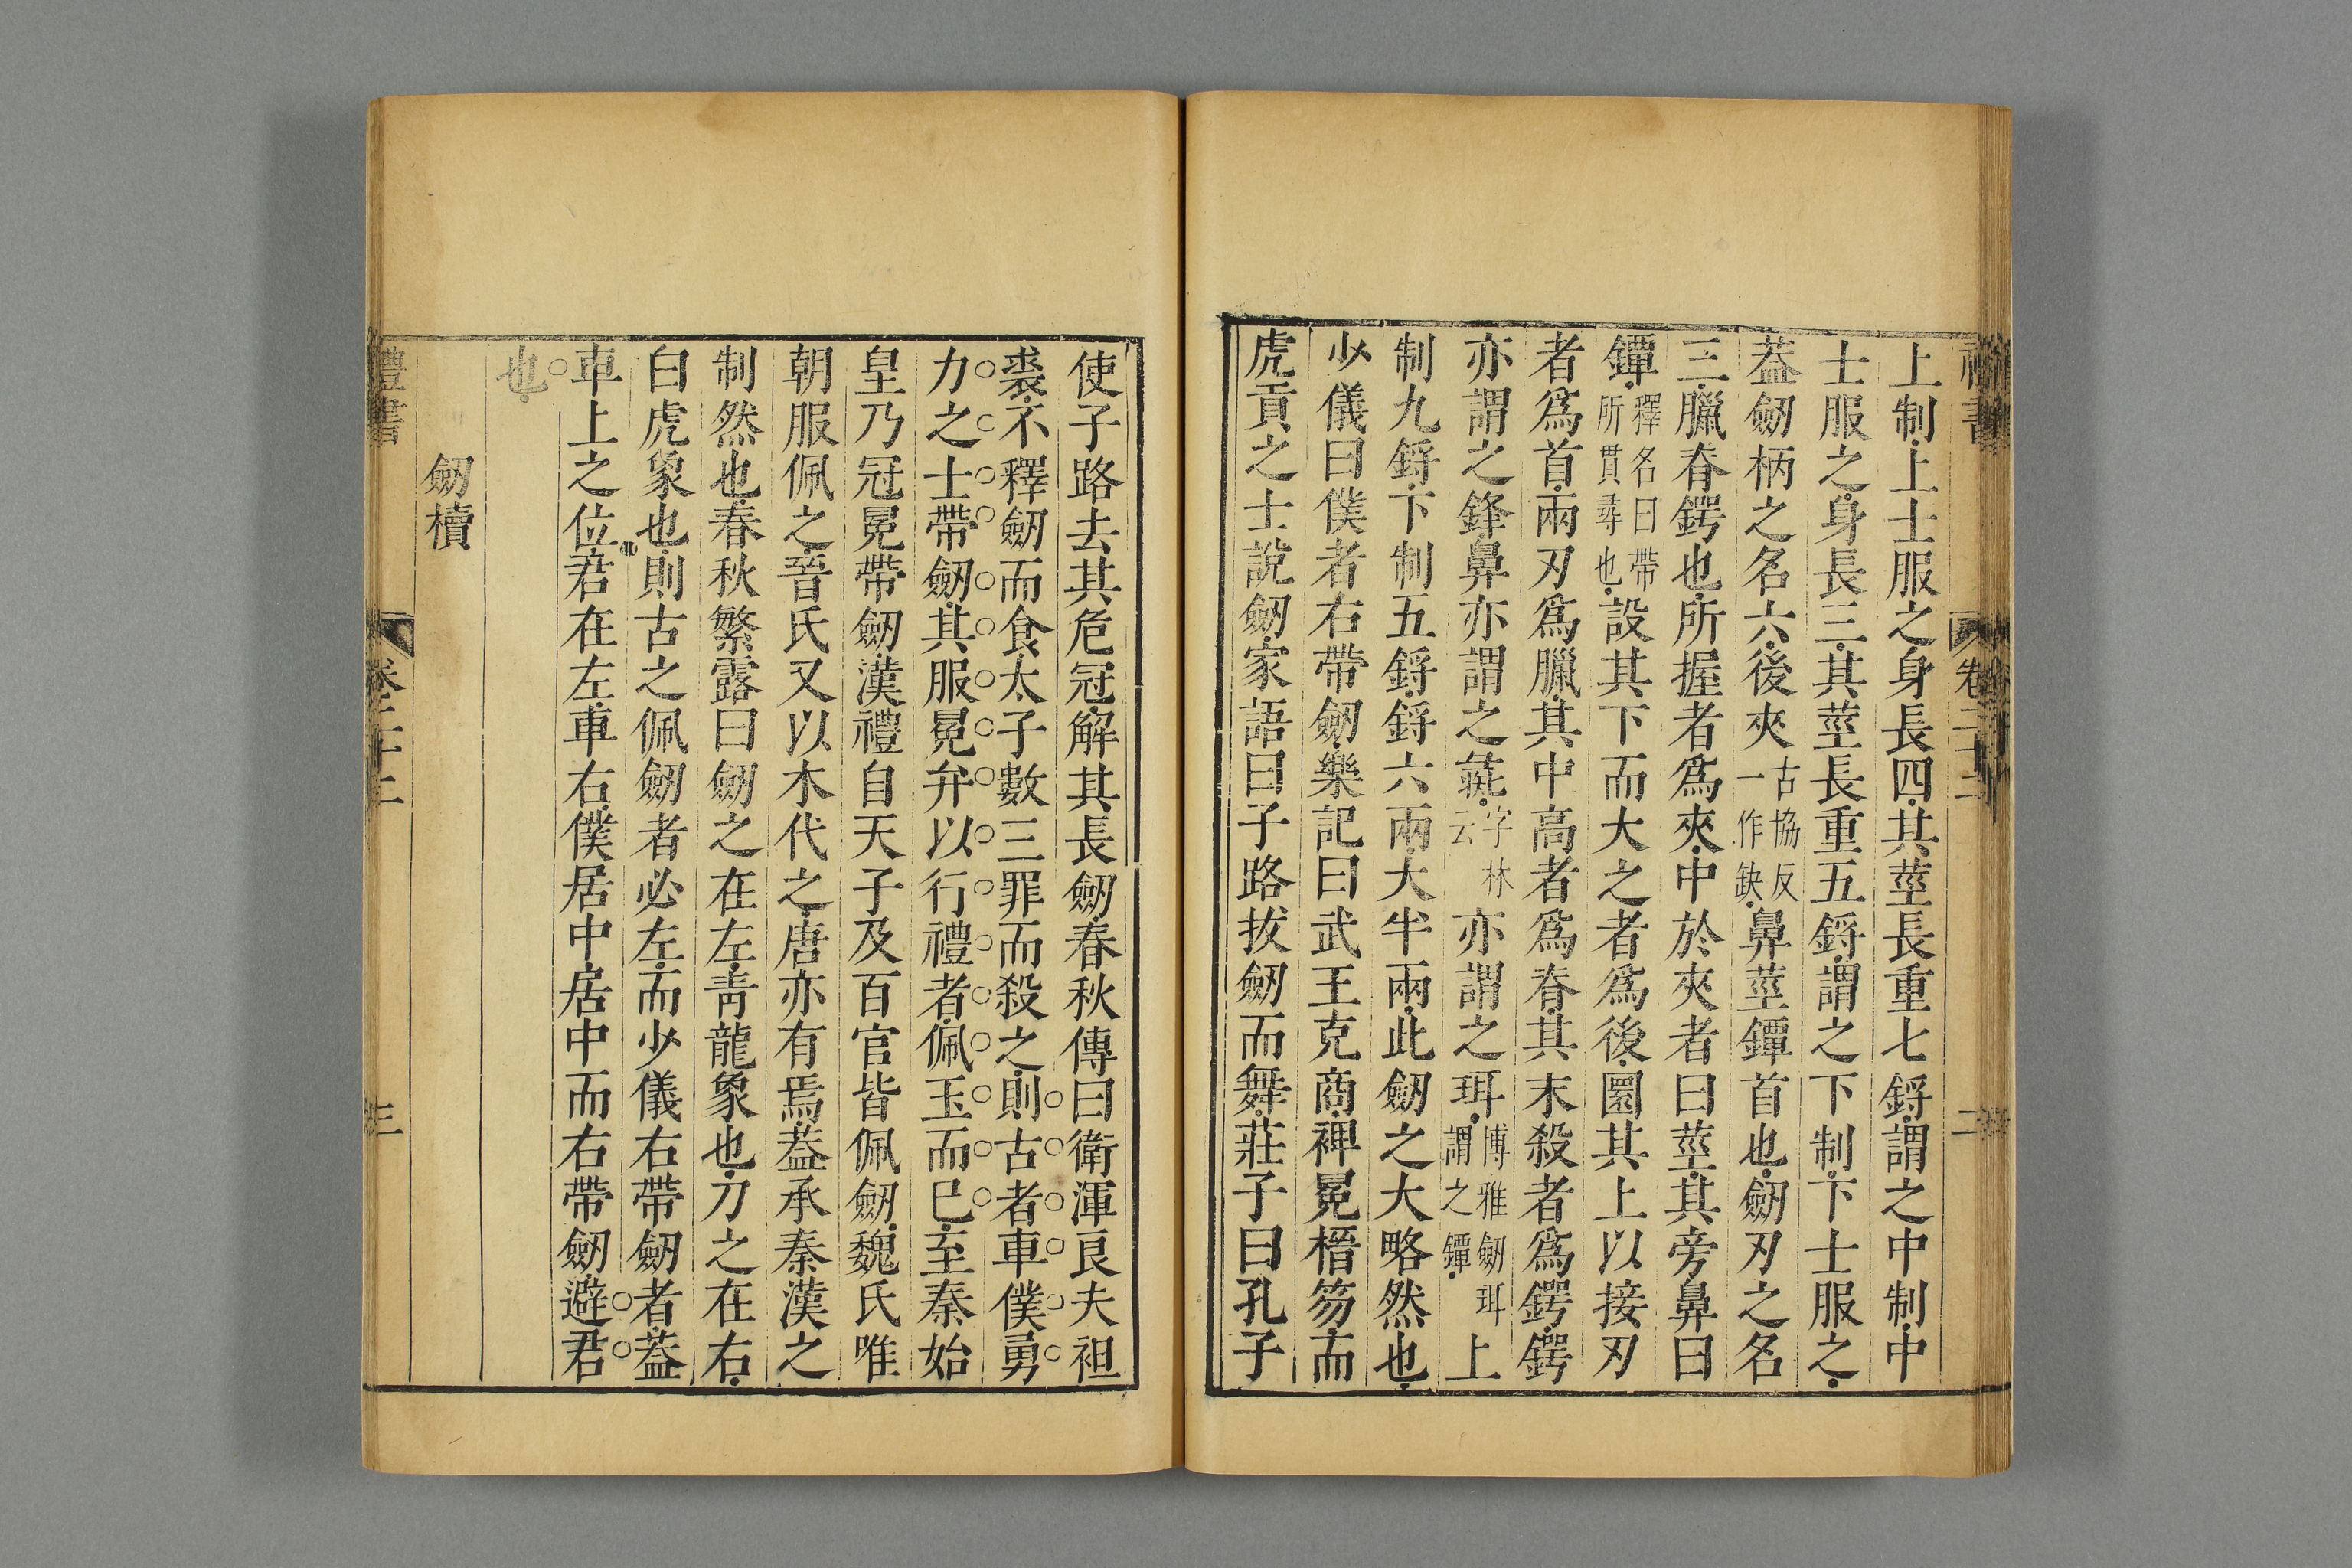 上制上士服之身長四其莖長重七鋝謂之中制中
士服之身長三其莖長重五鋝謂之下制下士服之
葢劒柄之名六後夾古協反一作鋏鼻莖鐔首也劒刃之名
三臘脊鍔也所握者爲夾中於夾者曰莖其旁鼻曰
鐔釋名曰帶所貫尋也設其下而大之者爲後圜其上以接刃
者爲首兩刃爲臘其中高者爲脊其末殺者爲鍔鍔
亦謂之鋒鼻亦謂之字林云亦謂之珥博雅劒珥謂之鐔上
制九鋝下制五鋝鋝六兩大半兩此劒之大略然也
少儀曰僕者右帶劒樂記曰武王克商裨冕搢笏而
虎賁之士說劒家語曰子路拔劒而舞莊子曰孔子
使子路去其危冠解其長劒春秋傳曰衛渾良夫袒
裘不釋劒而食太子數三罪而殺之則古者車僕勇
力之士帶劒其服冕弁以行禮者佩玉而巳至秦始
皇乃冠冕帶劒漢禮自天子及百官皆佩劒魏氏唯
朝服佩之晉氏又以木代之唐亦有焉葢承秦漢之
制然也春秋繁露曰劒之在左青龍象也刀之在右
白虎象也則古之佩劒者必左而少儀右帶劒者葢
車上之位君在左車右僕居中居中而右帶劒避君
也
劒櫝
禮書
卷二十二
三
卷二十二
二